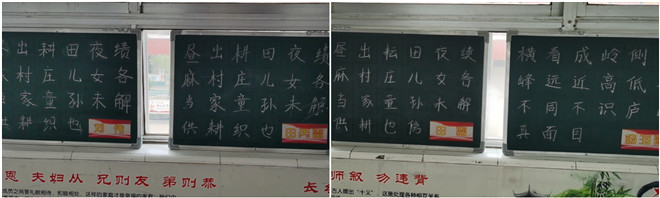 出耕田夜绩
村庄儿女各
家童孙未解
供耕织也
昼出耕田夜绩
麻村庄儿女各
当家童孙未解
供耕织也
恩 夫妇从 兄则友 弟则恭
长
昼出耘田夜绩
麻村庄儿女各
当家童孙未解
供耕也傍
横看成岭侧
峰远近高低
不同不识庐
真面目
叙 勿违背
古人提出“十义”，这是处理各种相互关系